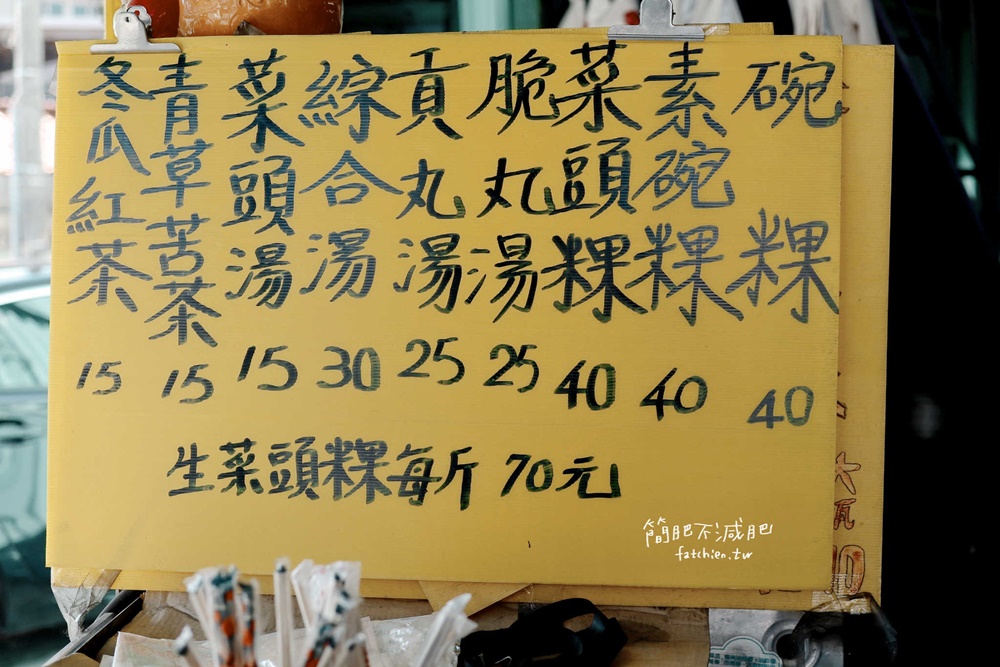 碗粿 40
素碗粿 40
菜頭粿 40
脆丸湯 25
貢丸湯 25
綜合湯 30
菜頭湯 15
青草苦茶 15
冬瓜紅茶 15
生菜頭粿每斤 70元
簡肥不減肥
fatchien.tw